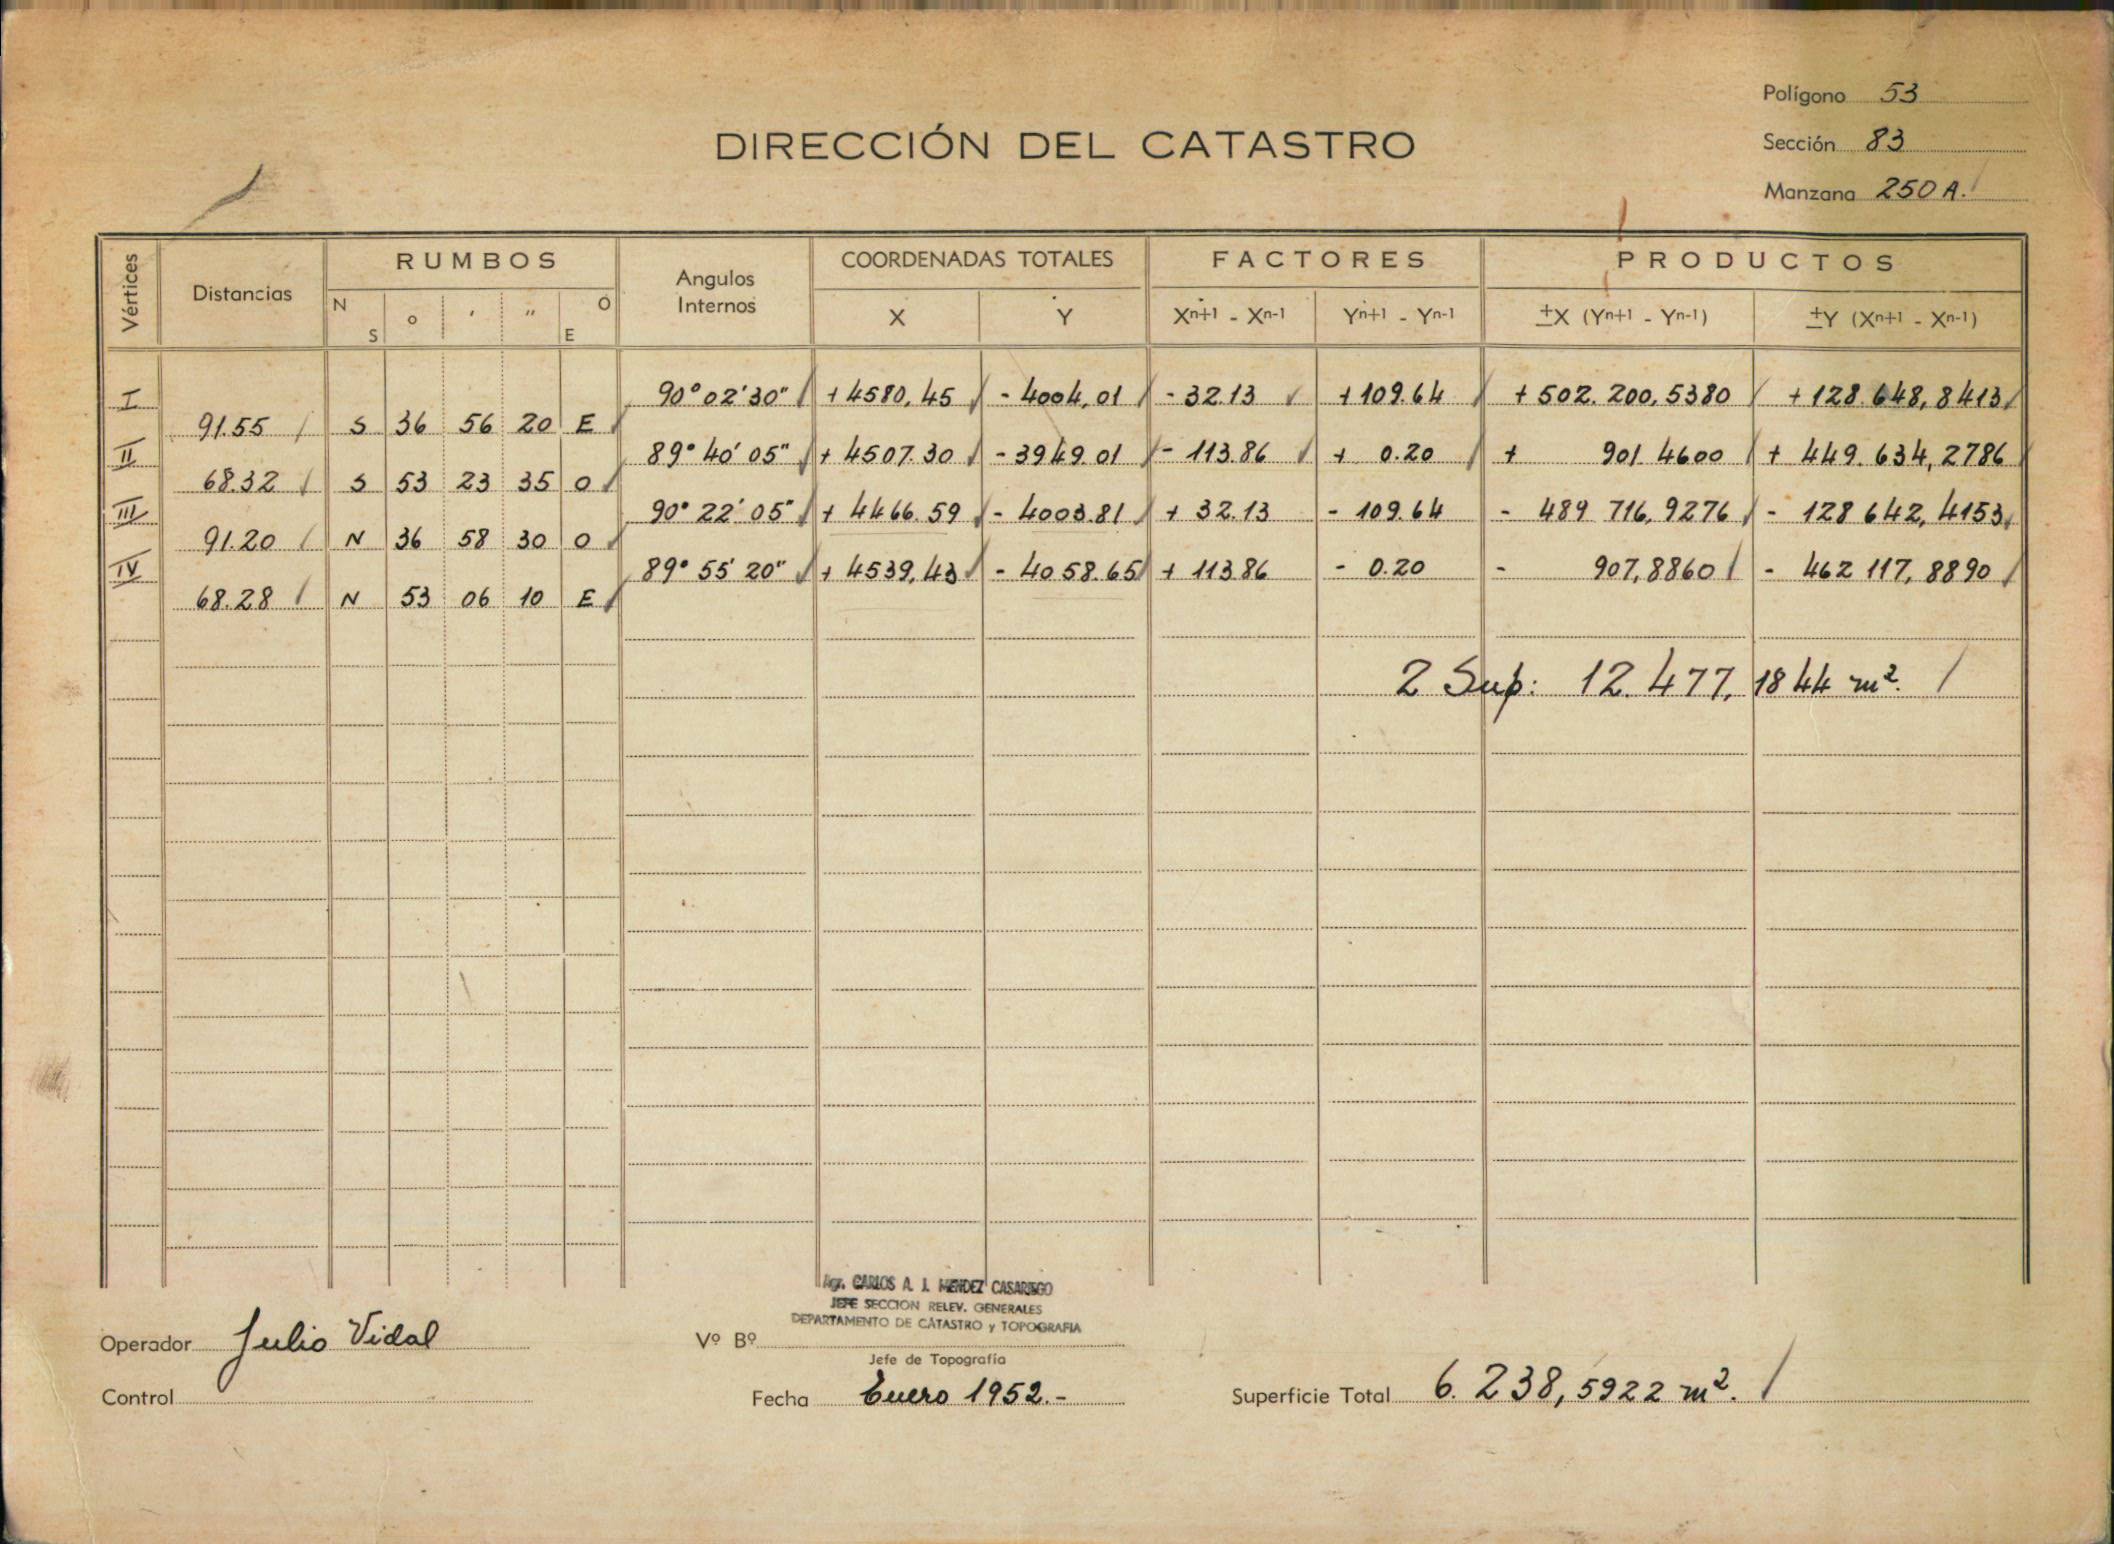 Polígono 53
DIRECCIÓN DEL CATASTRO
Sección 83
Manzana 250 A.
Vértices
Distancias
RUMBOS
N S ° ' " O E
Angulos Internos
COORDENADAS TOTALES
X Y
FACTORES
Xn+1 - Xn-1 Yn+1 - Yn-1
PRODUCTOS
±X (Yn+1 - Yn-1) ±Y (Xn+1 - Xn-1)
I 90° 02' 30" + 4580,45 - 4004,01 - 32.13 + 109.64 + 502.200,5380 + 128.648,8413
91.55 S 36 56 20 E
II 89° 40' 05" + 4507.30 - 3949.01 - 113.86 + 0.20 + 901.4600 + 449.634,2786
68.32 S 53 23 35 O
III 90° 22' 05" + 4466.59 - 4003.81 + 32.13 - 109.64 - 489 716,9276 - 128 642,4153
91.20 N 36 58 30 O
IV 89° 55' 20" + 4539,43 - 4058.65 + 113.86 - 0.20 - 907,8860 - 462 117,8890
68.28 N 53 06 10 E
2 Sup: 12.477,1844 m².
Agr. CARLOS A. J. MENDEZ CASARIEGO
JEFE SECCION RELEV. GENERALES
DEPARTAMENTO DE CATASTRO y TOPOGRAFIA
Operador Julio Vidal
Vº Bº
Jefe de Topografía
Control
Fecha Enero 1952.-
Superficie Total 6.238,5922 m².